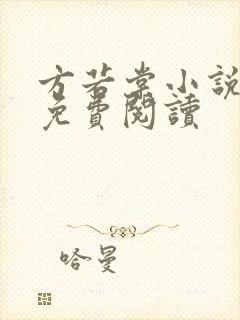 方若棠小說
免費閱讀
哈曼